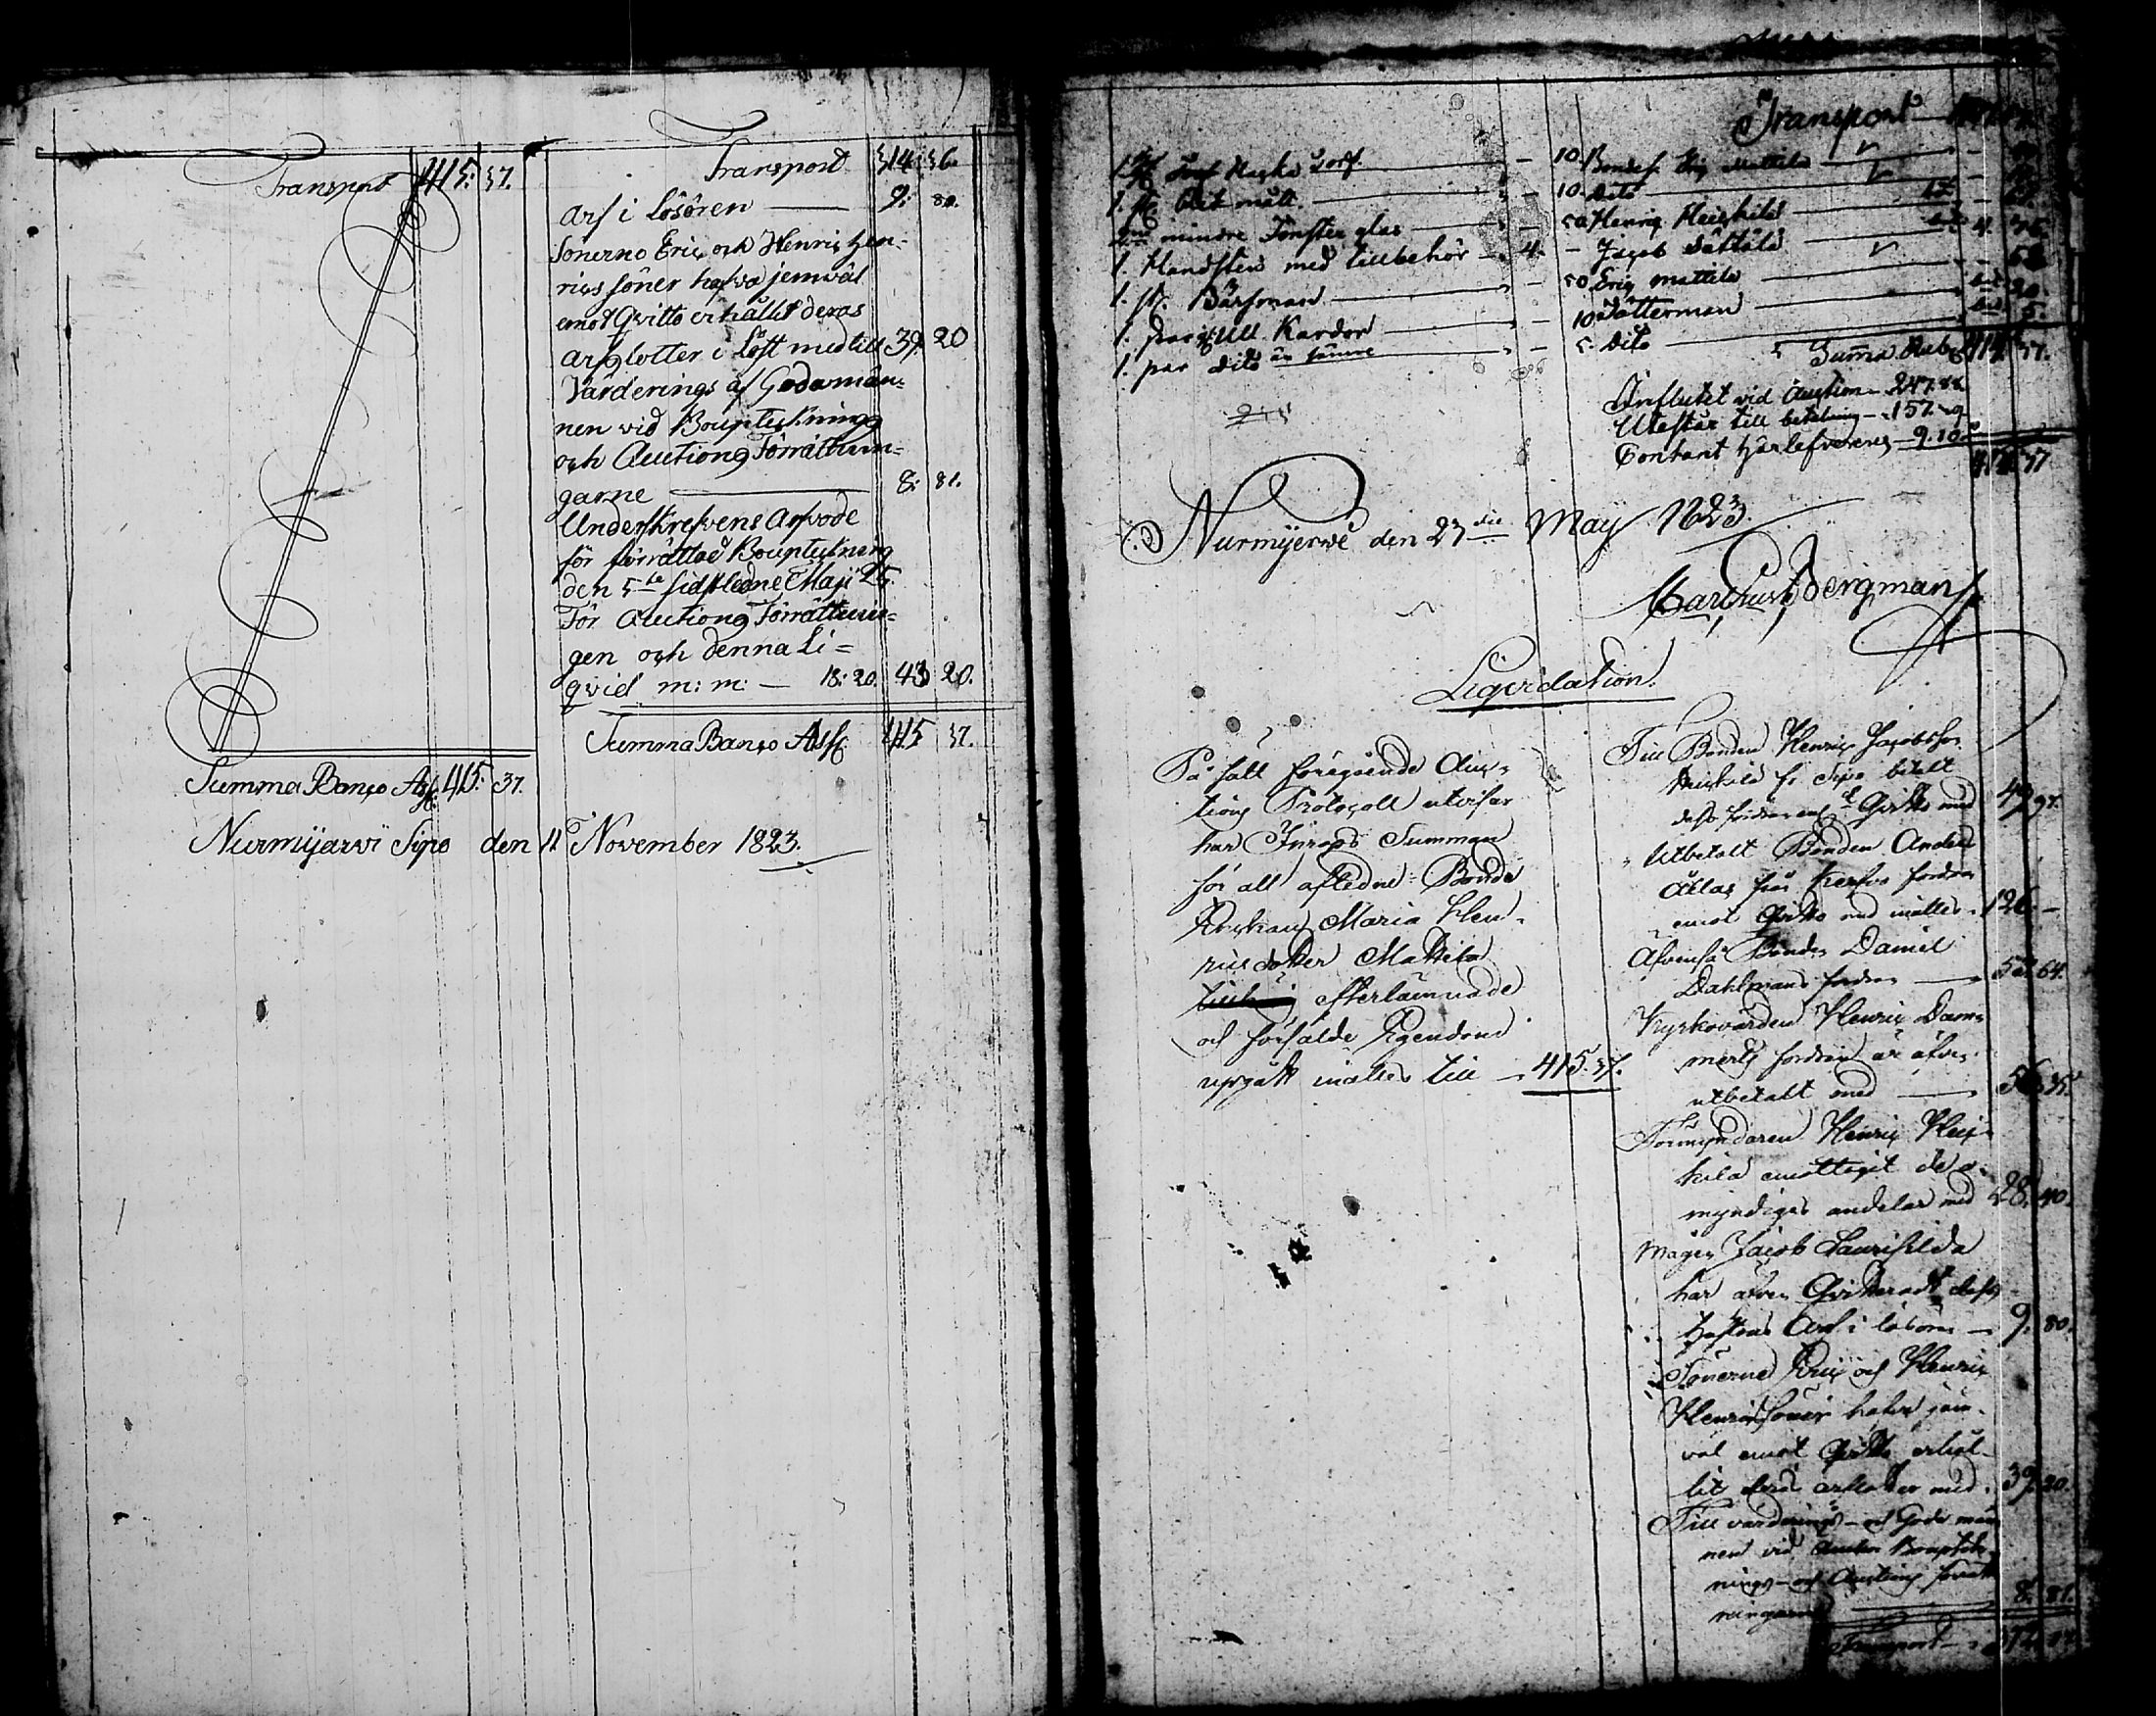 Transport 415: 37.
Summa Banco Ass: 415. 37.
Nurmijärvi Sipo den 11 November 1823.
Transport 314: 36.
Arf i Lösören 9: 80.
Sönerno Eric och Henric Hen-
rics söner hafva jemväl
emot Qvitto erhållit deras
Arfslotter i Löst med till 39. 20
Värderings af Godamän-
nen vid Bouptekning
och Auctions Förrättnin-
garne 8: 81.
Underskrefvens Arfvode
för förrättad Bouptekning
den 5te sidstledne Maji 25.
För Auctions Förrättnin-
gen och denna Li-
qvid m: m: — 18: 20. 43 20.
Summa Banco Ass: 415 37.
Transport
10. Bondes. Eric Mattila
10. Dito
mindre Fönster glas 50 Henric Heickilä
1. Handsten med tillbehör 4. Jacob
1. st. Bärsman 50 Eric Mattila
1. par Ull Kardor 10
1. par dito än sämre 5. Dito
Summa Rub. 415 37.
Influtet vid Auction 247. 88.
Utestår till betalning 157.
Contant härlefvereras 9. 10
415 37
Nurmijerwi den 23die May 1823.
Bergman
Liqvidation.
På sätt föregående Auc-
tions Protocoll utvisar
har Inrops Summan
för all afledne Bonde
Enkans Maria Hen-
rics dotter Mattila
efterlämnade
och försålde Egendom
upgått inalles till 415. 37.
Till Bonden Henric Jacobsson
Heickilä fr. Sipo betalt
dess fordran enl. Qvitto med 49 97.
Utbetalt Bonden Anders
Åklas från Kerfvo fordran
emot Qvitto med inalles 126. —
Äfvenså Bonden Daniel
Dahlmans fordran 64.
Kyrkovärden Henric Dam-
merts fordran är äfven
utbetalt med 56 35.
Förmyndaren Henric Heic-
kilä emottagit de o-
myndigas andelar med 28. 40.
Mågen Jacob Laurikilda
har äfven Qvitteradt dess
Hustrus Arf i lösören 9. 80.
Sönerne Eric och Henric
Henricssöner hafva jäm-
väl emot Qvitto erhål-
lit deras arfslotter med 39. 20.
Till värderings- och Gode män-
nen vid Bouptek-
nings- och Auctions förrätt-
ningarne 8. 81.
Transport